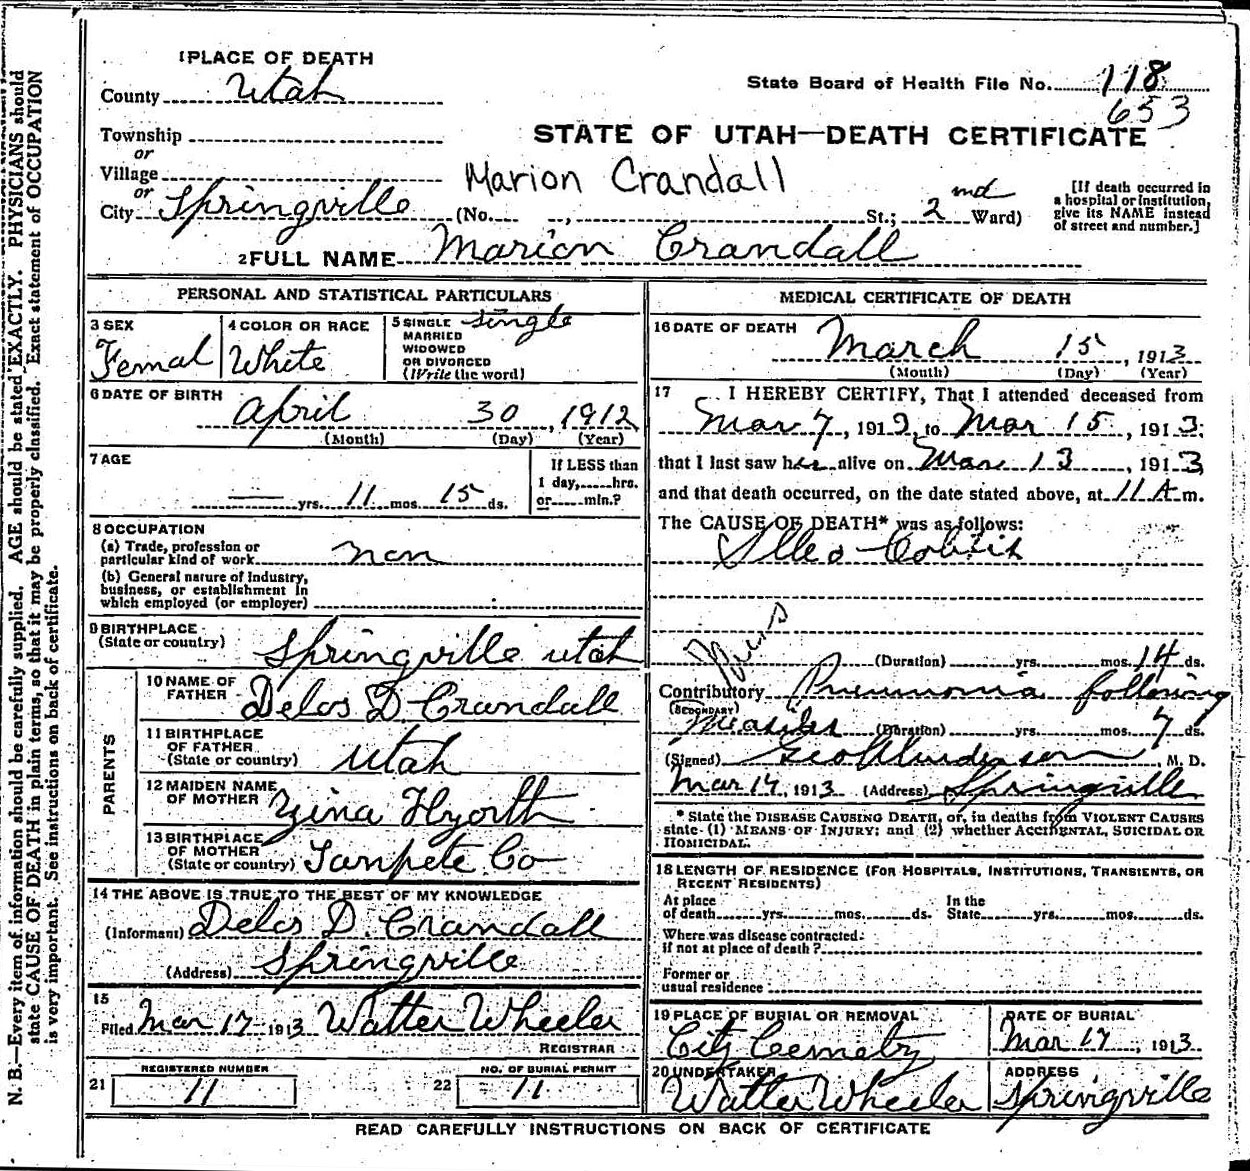 N. B.—Every item of information should be carefully supplied. AGE should be stated EXACTLY. PHYSICIANS should
state CAUSE OF DEATH in plain terms, so that it may be properly classified. Exact statement of OCCUPATION
is very important. See instructions on back of certificate.
1 PLACE OF DEATH
County Utah
State Board of Health File No. 118
653
Township
or
STATE OF UTAH—DEATH CERTIFICATE
Village
or
Marion Crandall
City Springville (No. , St.; 2 nd Ward)
[If death occurred in
a hospital or institution,
give its NAME instead
of street and number.]
2 FULL NAME Marion Crandall
PERSONAL AND STATISTICAL PARTICULARS
3 SEX
Femal
4 COLOR OR RACE
White
5 SINGLE
MARRIED
WIDOWED
OR DIVORCED
(Write the word)
Single
6 DATE OF BIRTH
April 30, 1912
(Month) (Day) (Year)
7 AGE
— yrs. 11 mos. 15 ds.
If LESS than
1 day, hrs.
or min.?
8 OCCUPATION
(a) Trade, profession or
particular kind of work non
(b) General nature of Industry,
business, or establishment in
which employed (or employer)
9 BIRTHPLACE
(State or country) Springville utah
PARENTS
10 NAME OF
FATHER Delos D Crandall
11 BIRTHPLACE
OF FATHER
(State or country) Utah
12 MAIDEN NAME
OF MOTHER Zina Hyorth
13 BIRTHPLACE
OF MOTHER
(State or country) Sanpete Co
14 THE ABOVE IS TRUE TO THE BEST OF MY KNOWLEDGE
(Informant) Delos D. Crandall
(Address) Springville
15
Filed Mar 17 1913 Walter Wheeler
REGISTRAR
REGISTERED NUMBER
21 11
NO. OF BURIAL PERMIT
22 11
MEDICAL CERTIFICATE OF DEATH
16 DATE OF DEATH
March 15, 1913
(Month) (Day) (Year)
17 I HEREBY CERTIFY, That I attended deceased from
Mar 7, 1913, to Mar 15, 1913,
that I last saw her alive on Mar 13, 1913,
and that death occurred, on the date stated above, at 11 A m.
The CAUSE OF DEATH* was as follows:
(Duration) yrs. mos. 14 ds.
Contributory Pneumonia following
(SECONDARY) Measles (Duration) yrs. mos. 7 ds.
(Signed) Geo Anderson, M. D.
Mar 17, 1913 (Address) Springville
* State the DISEASE CAUSING DEATH, or, in deaths from VIOLENT CAUSES
state (1) MEANS OF INJURY; and (2) whether ACCIDENTAL, SUICIDAL OR
HOMICIDAL.
18 LENGTH OF RESIDENCE (FOR HOSPITALS, INSTITUTIONS, TRANSIENTS, OR
RECENT RESIDENTS)
At place
of death yrs. mos. ds.
In the
State yrs. mos. ds.
Where was disease contracted
if not at place of death?
Former or
usual residence
19 PLACE OF BURIAL OR REMOVAL
City Cemetry
DATE OF BURIAL
Mar 17, 1913
20 UNDERTAKER
Walter Wheeler
ADDRESS
Springville
READ CAREFULLY INSTRUCTIONS ON BACK OF CERTIFICATE